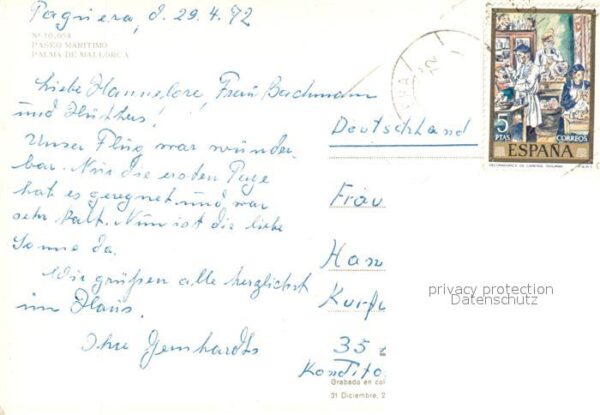 Paguera, d. 29.4.72
Nº 10.054
PASEO MARITIMO
PALMA DE MALLORCA
Liebe Hannelore, Frau Bachmann
und Hüthers!
Unser Flug war wunder
bar. Nur die ersten Tage
hat es geregnet und war
sehr kalt. Nun ist die liebe
Sonne da.
Wir grüßen alle herzlichst
im Haus.
Ihre Gemhardts
5
PTAS
CORREOS
ESPAÑA
Deutschland
Frau
Han
Kurfü
35
Kondito
privacy protection
Datenschutz
Grabado en col
31 Diciembre, 2